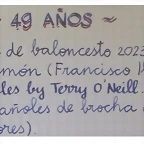 ~ 49 AÑOS ~
de baloncesto 2023
món (Francisco
les by Terry O'Neill.
añoles de brocha
ores).